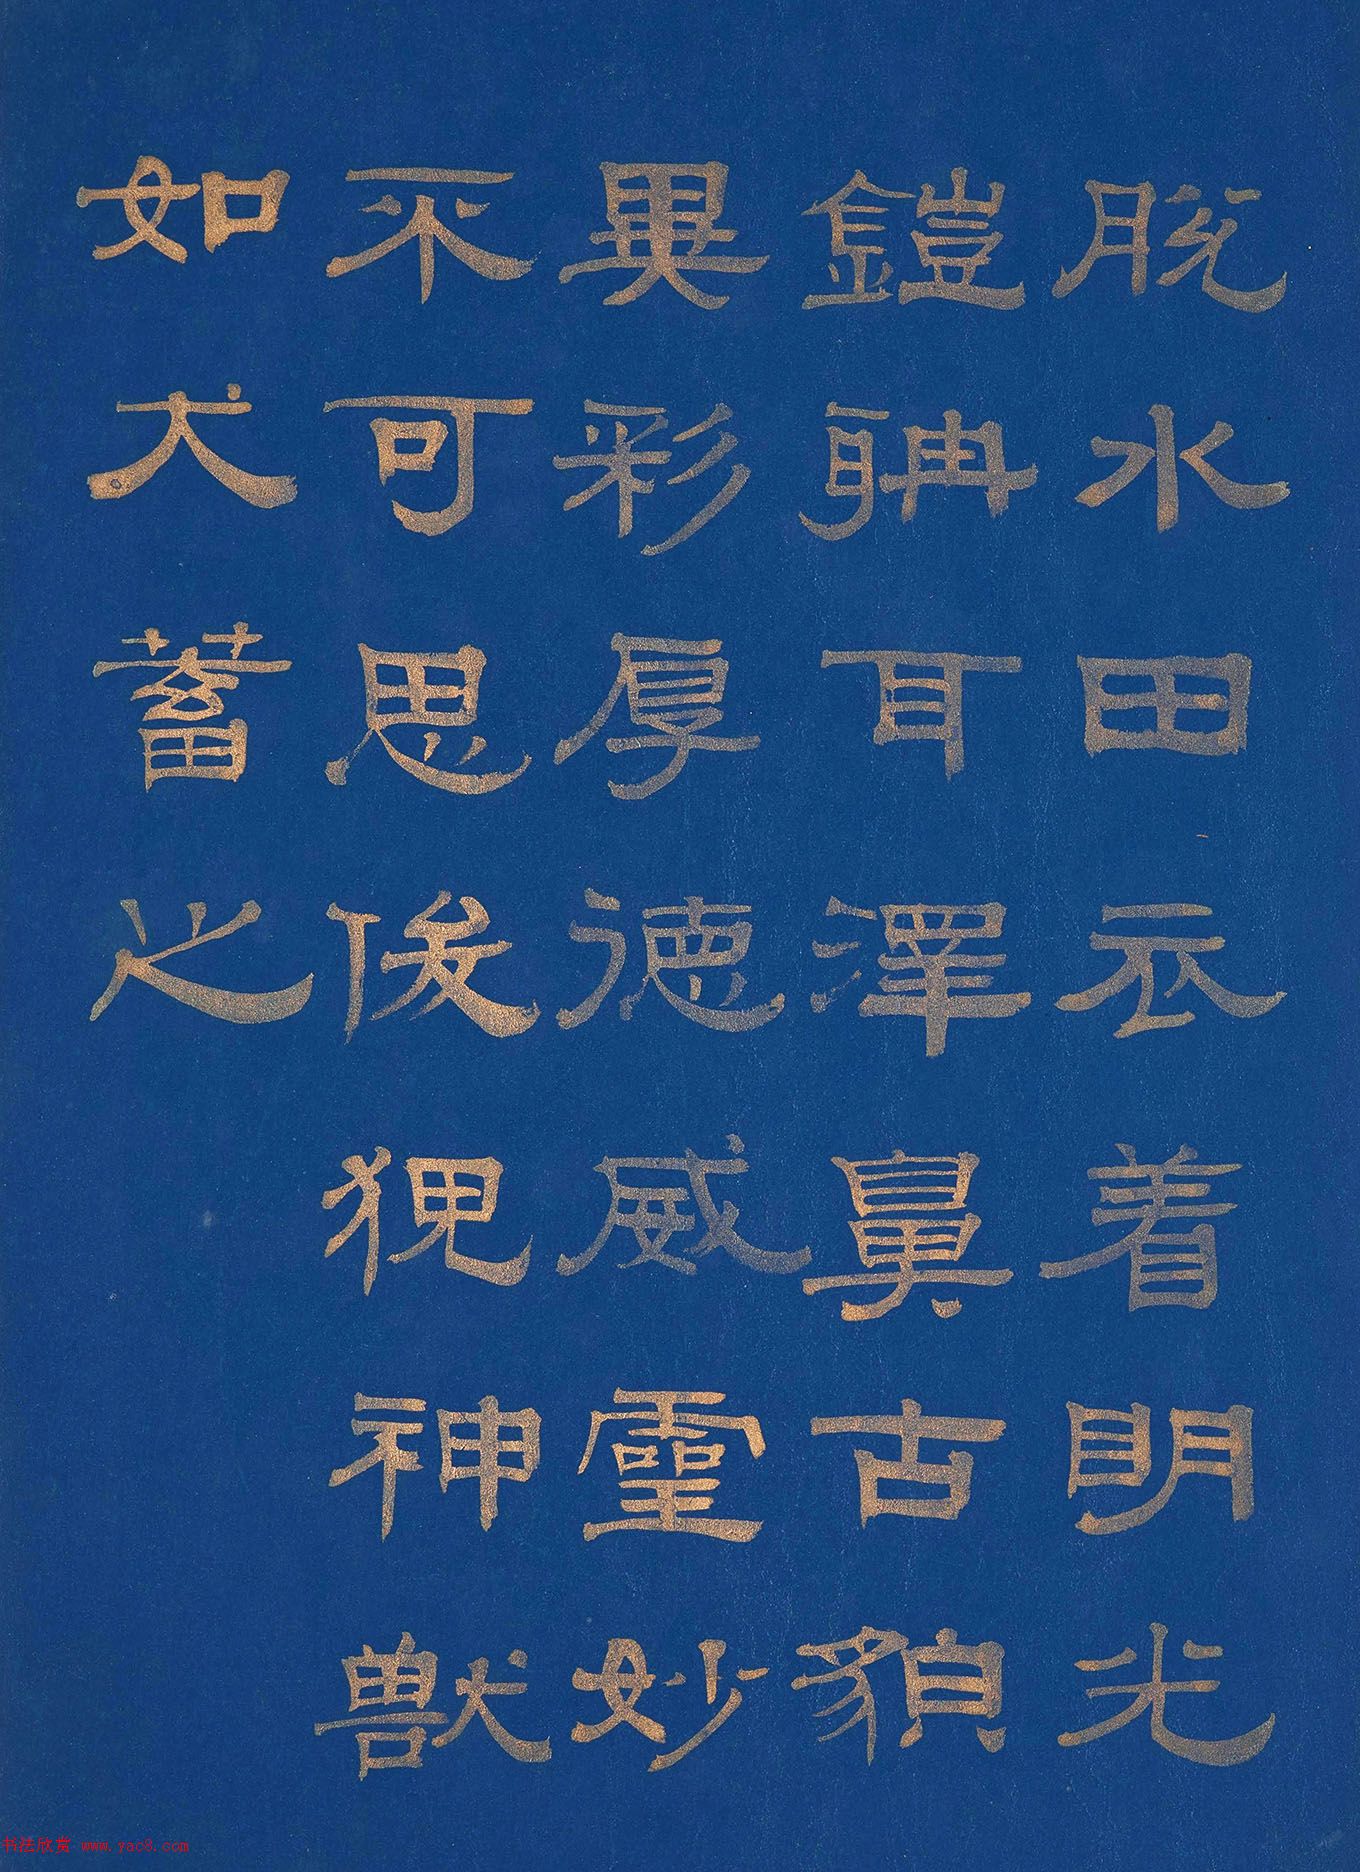 脫水田衣着明光
鎧聃耳澤鼻古貌
異彩厚徳威靈妙
不可思俊猊神獸
如犬蓄之
书法欣赏 www.yac8.com